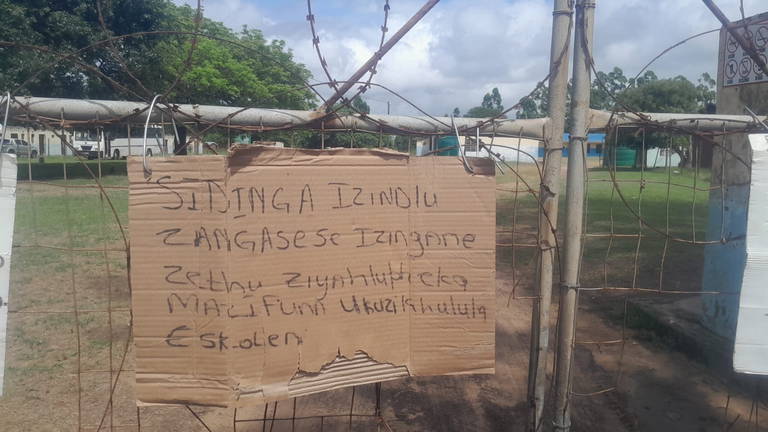 SIDINGA IZINDLU
ZANGASESE IZINGANE
ZETHU ZIYAHLUPHEKA
MAZIFUNA UKUZIKHULULA
ESKOLENI